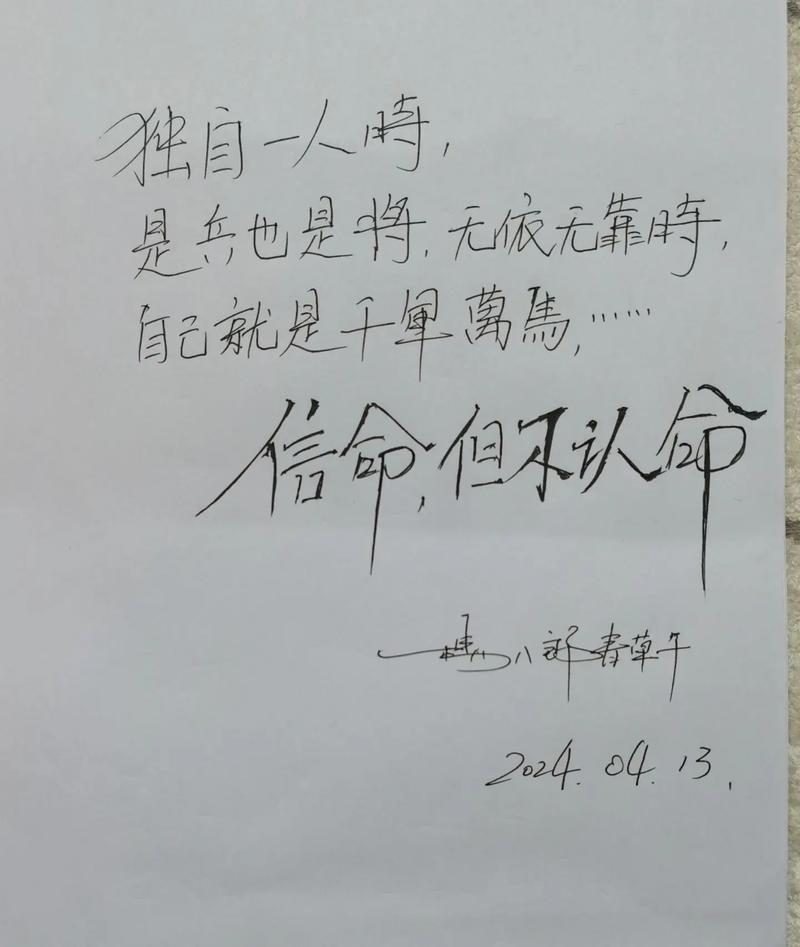 独自一人時，
是兵也是將，无依无靠時，
自己就是千軍萬馬，……
信命，但不认命
八郎春草午
2024.04.13.